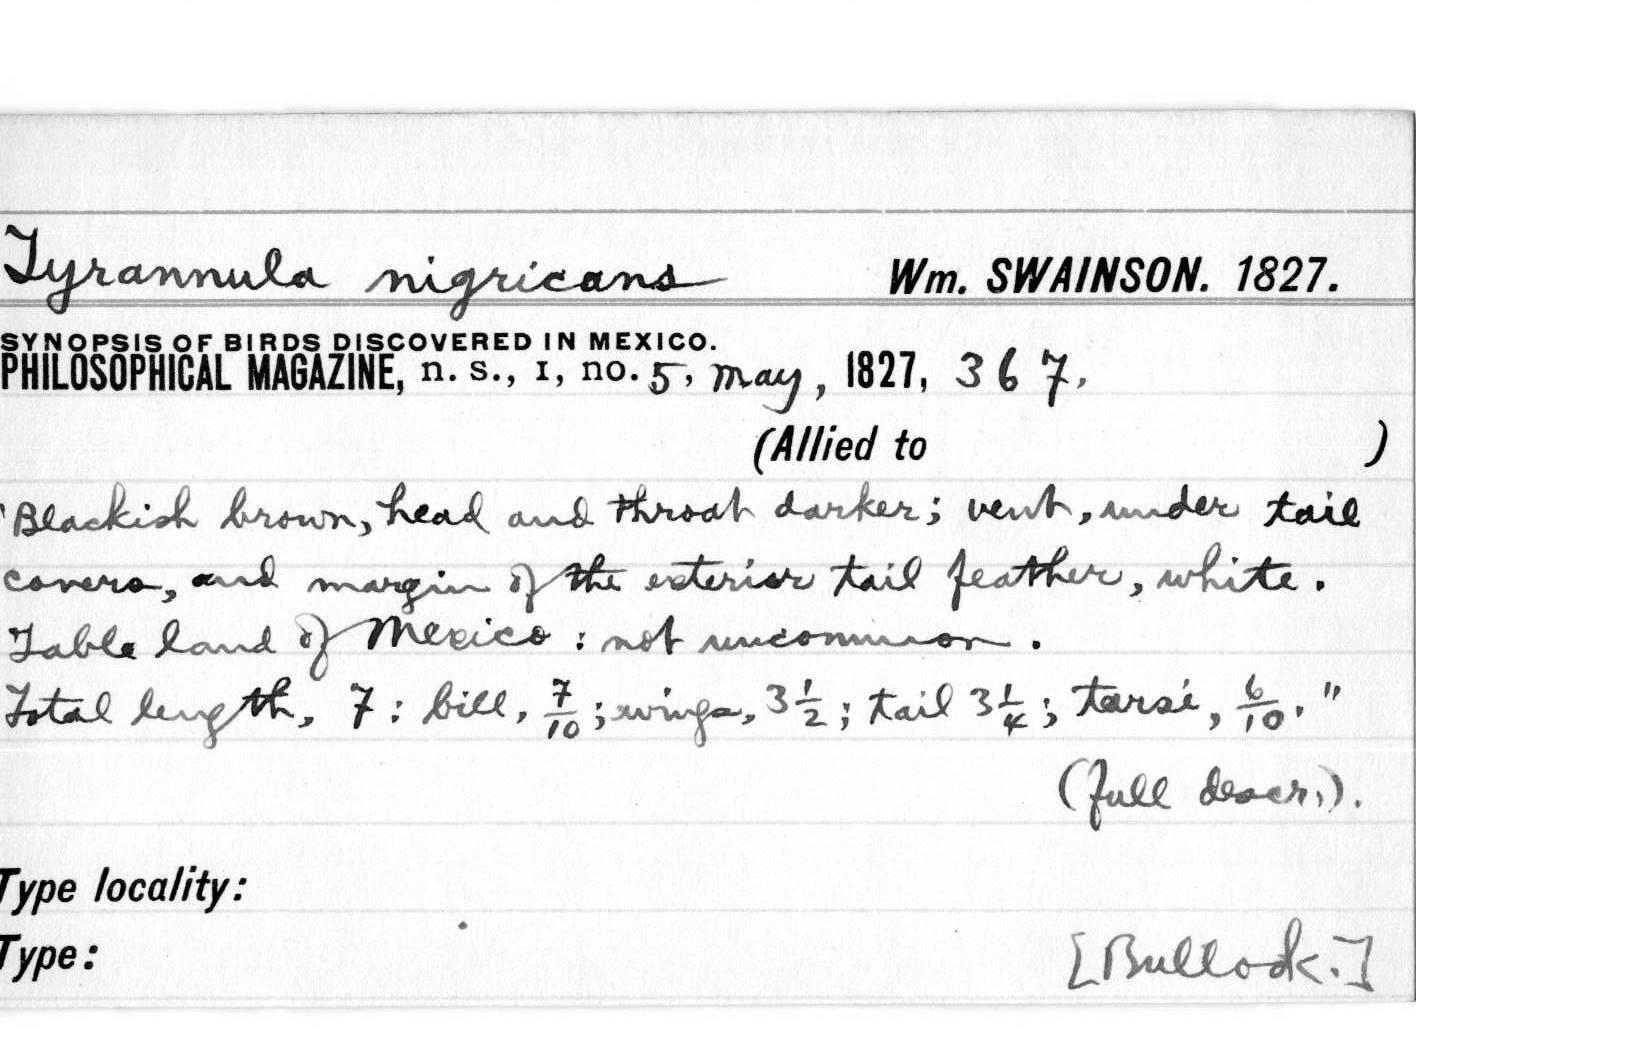 Tyrannula nigricans Wm. SWAINSON. 1827.
SYNOPSIS OF BIRDS DISCOVERED IN MEXICO.
PHILOSOPHICAL MAGAZINE, n. s., I, no. 5, May, 1827, 367.
(Allied to )
"Blackish brown, head and throat darker; vent, under tail
covers, and margin of the exterior tail feather, white.
Table land of Mexico: not uncommon.
Total length, 7: bill, 7/10; wings, 3 1/2; tail 3 1/4; tarsi, 6/10."
(full descr.).
Type locality:
Type: [Bullock.]